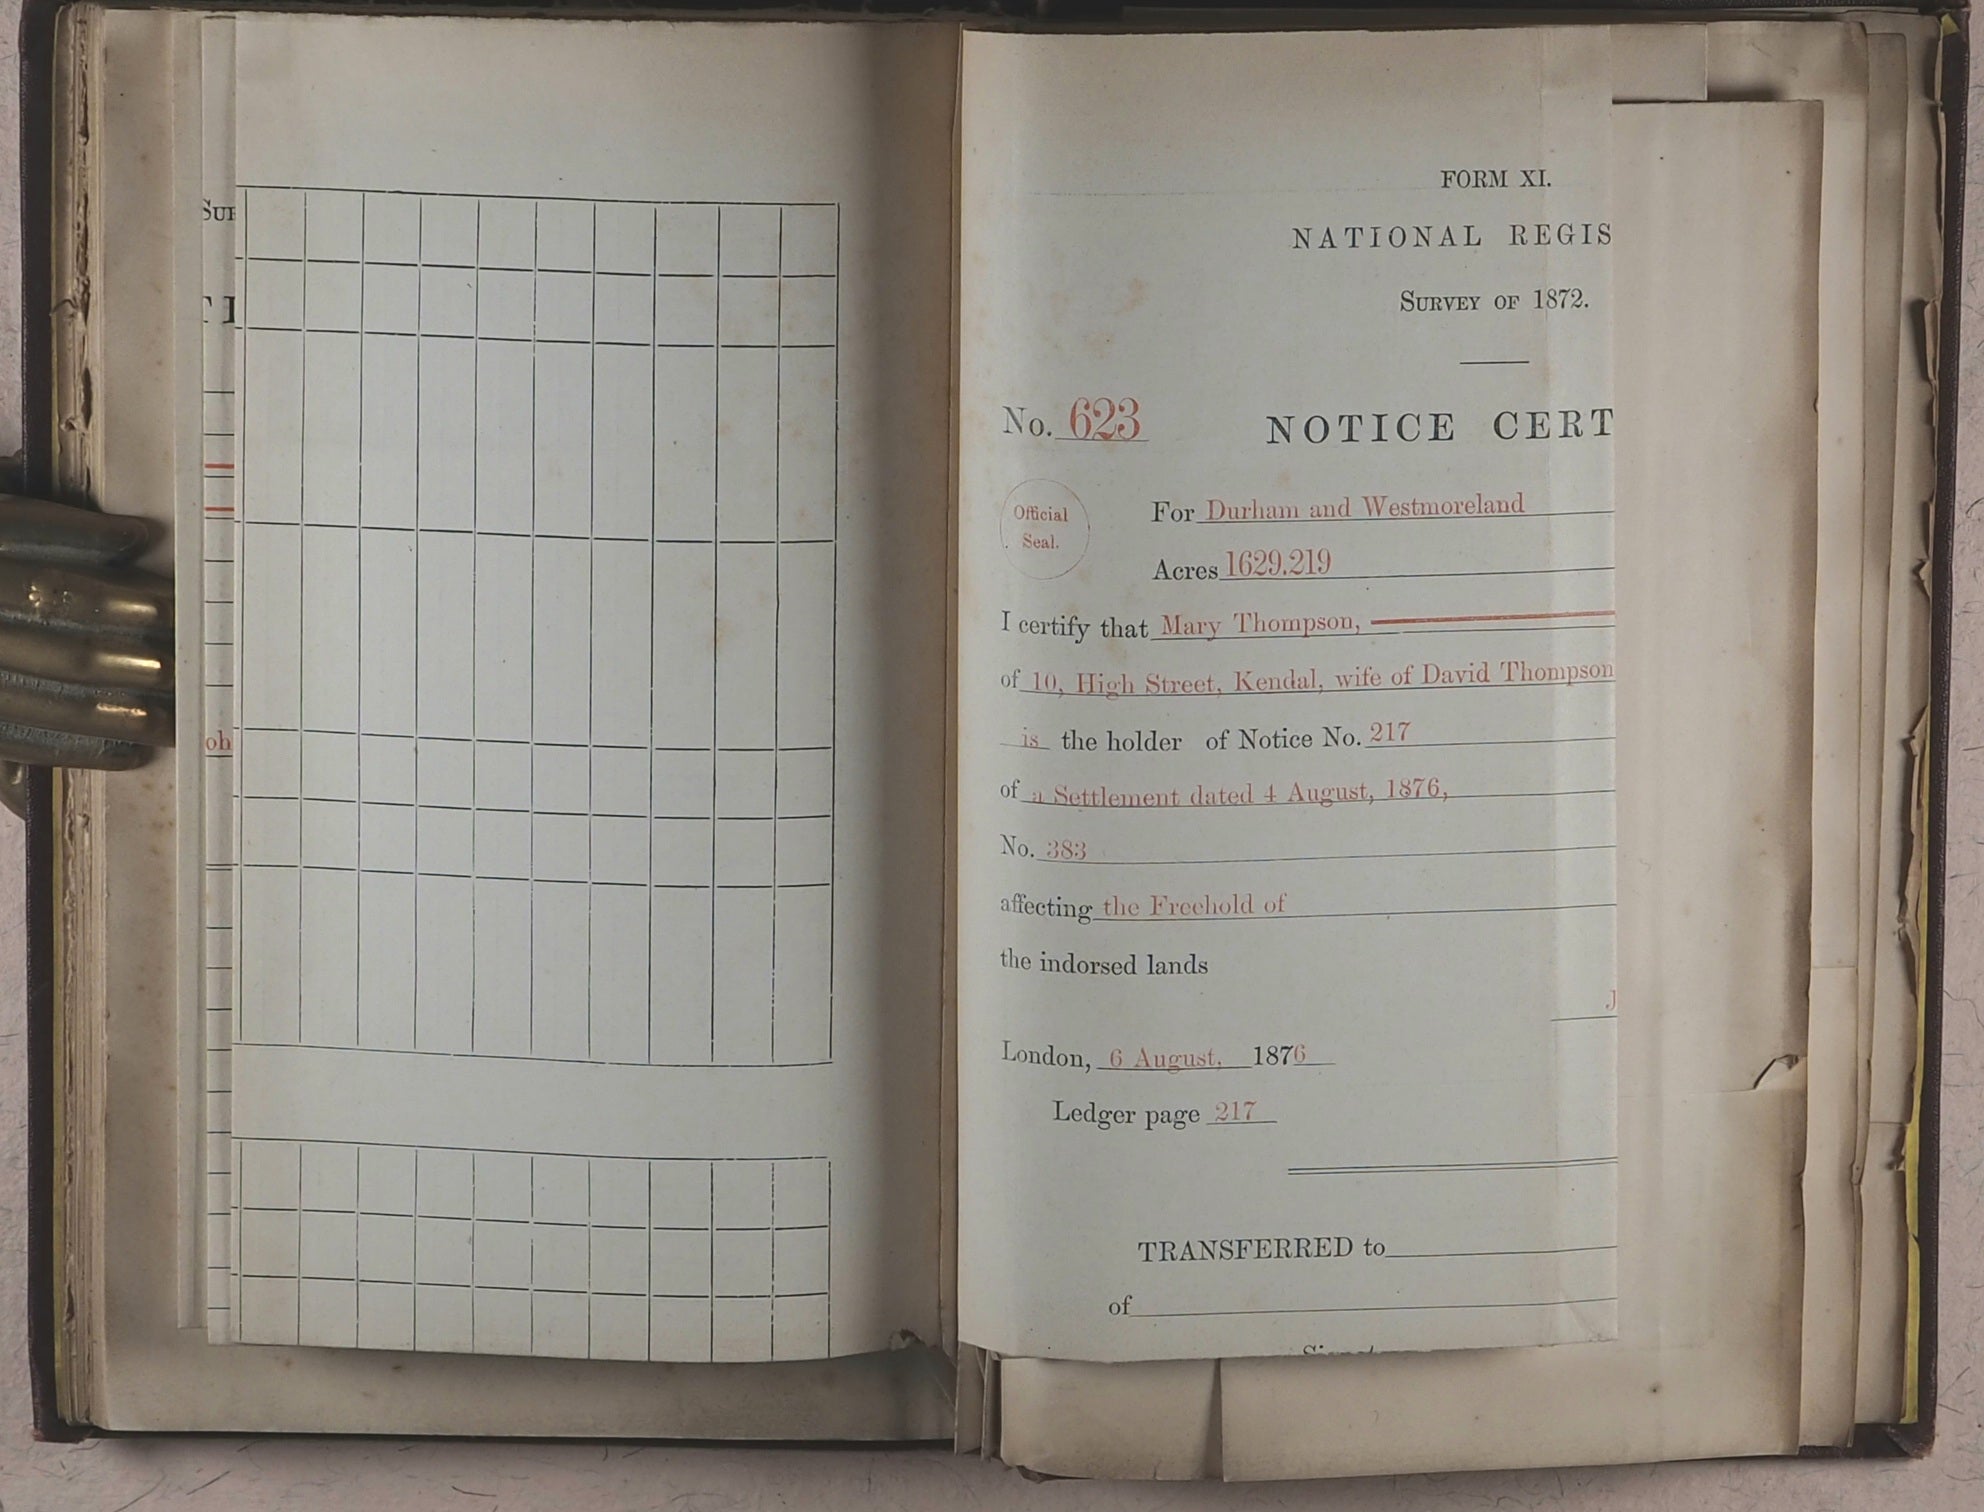 FORM XI.
NATIONAL REGIS
SURVEY OF 1872.
No. 623
NOTICE CERT
Official
Seal.
For Durham and Westmoreland
Acres 1629.219
I certify that Mary Thompson,
of 10, High Street, Kendal, wife of David Thompson
is the holder of Notice No. 217
of a Settlement dated 4 August, 1876,
No. 383
affecting the Freehold of
the indorsed lands
J
London, 6 August, 1876
Ledger page 217
TRANSFERRED to
of